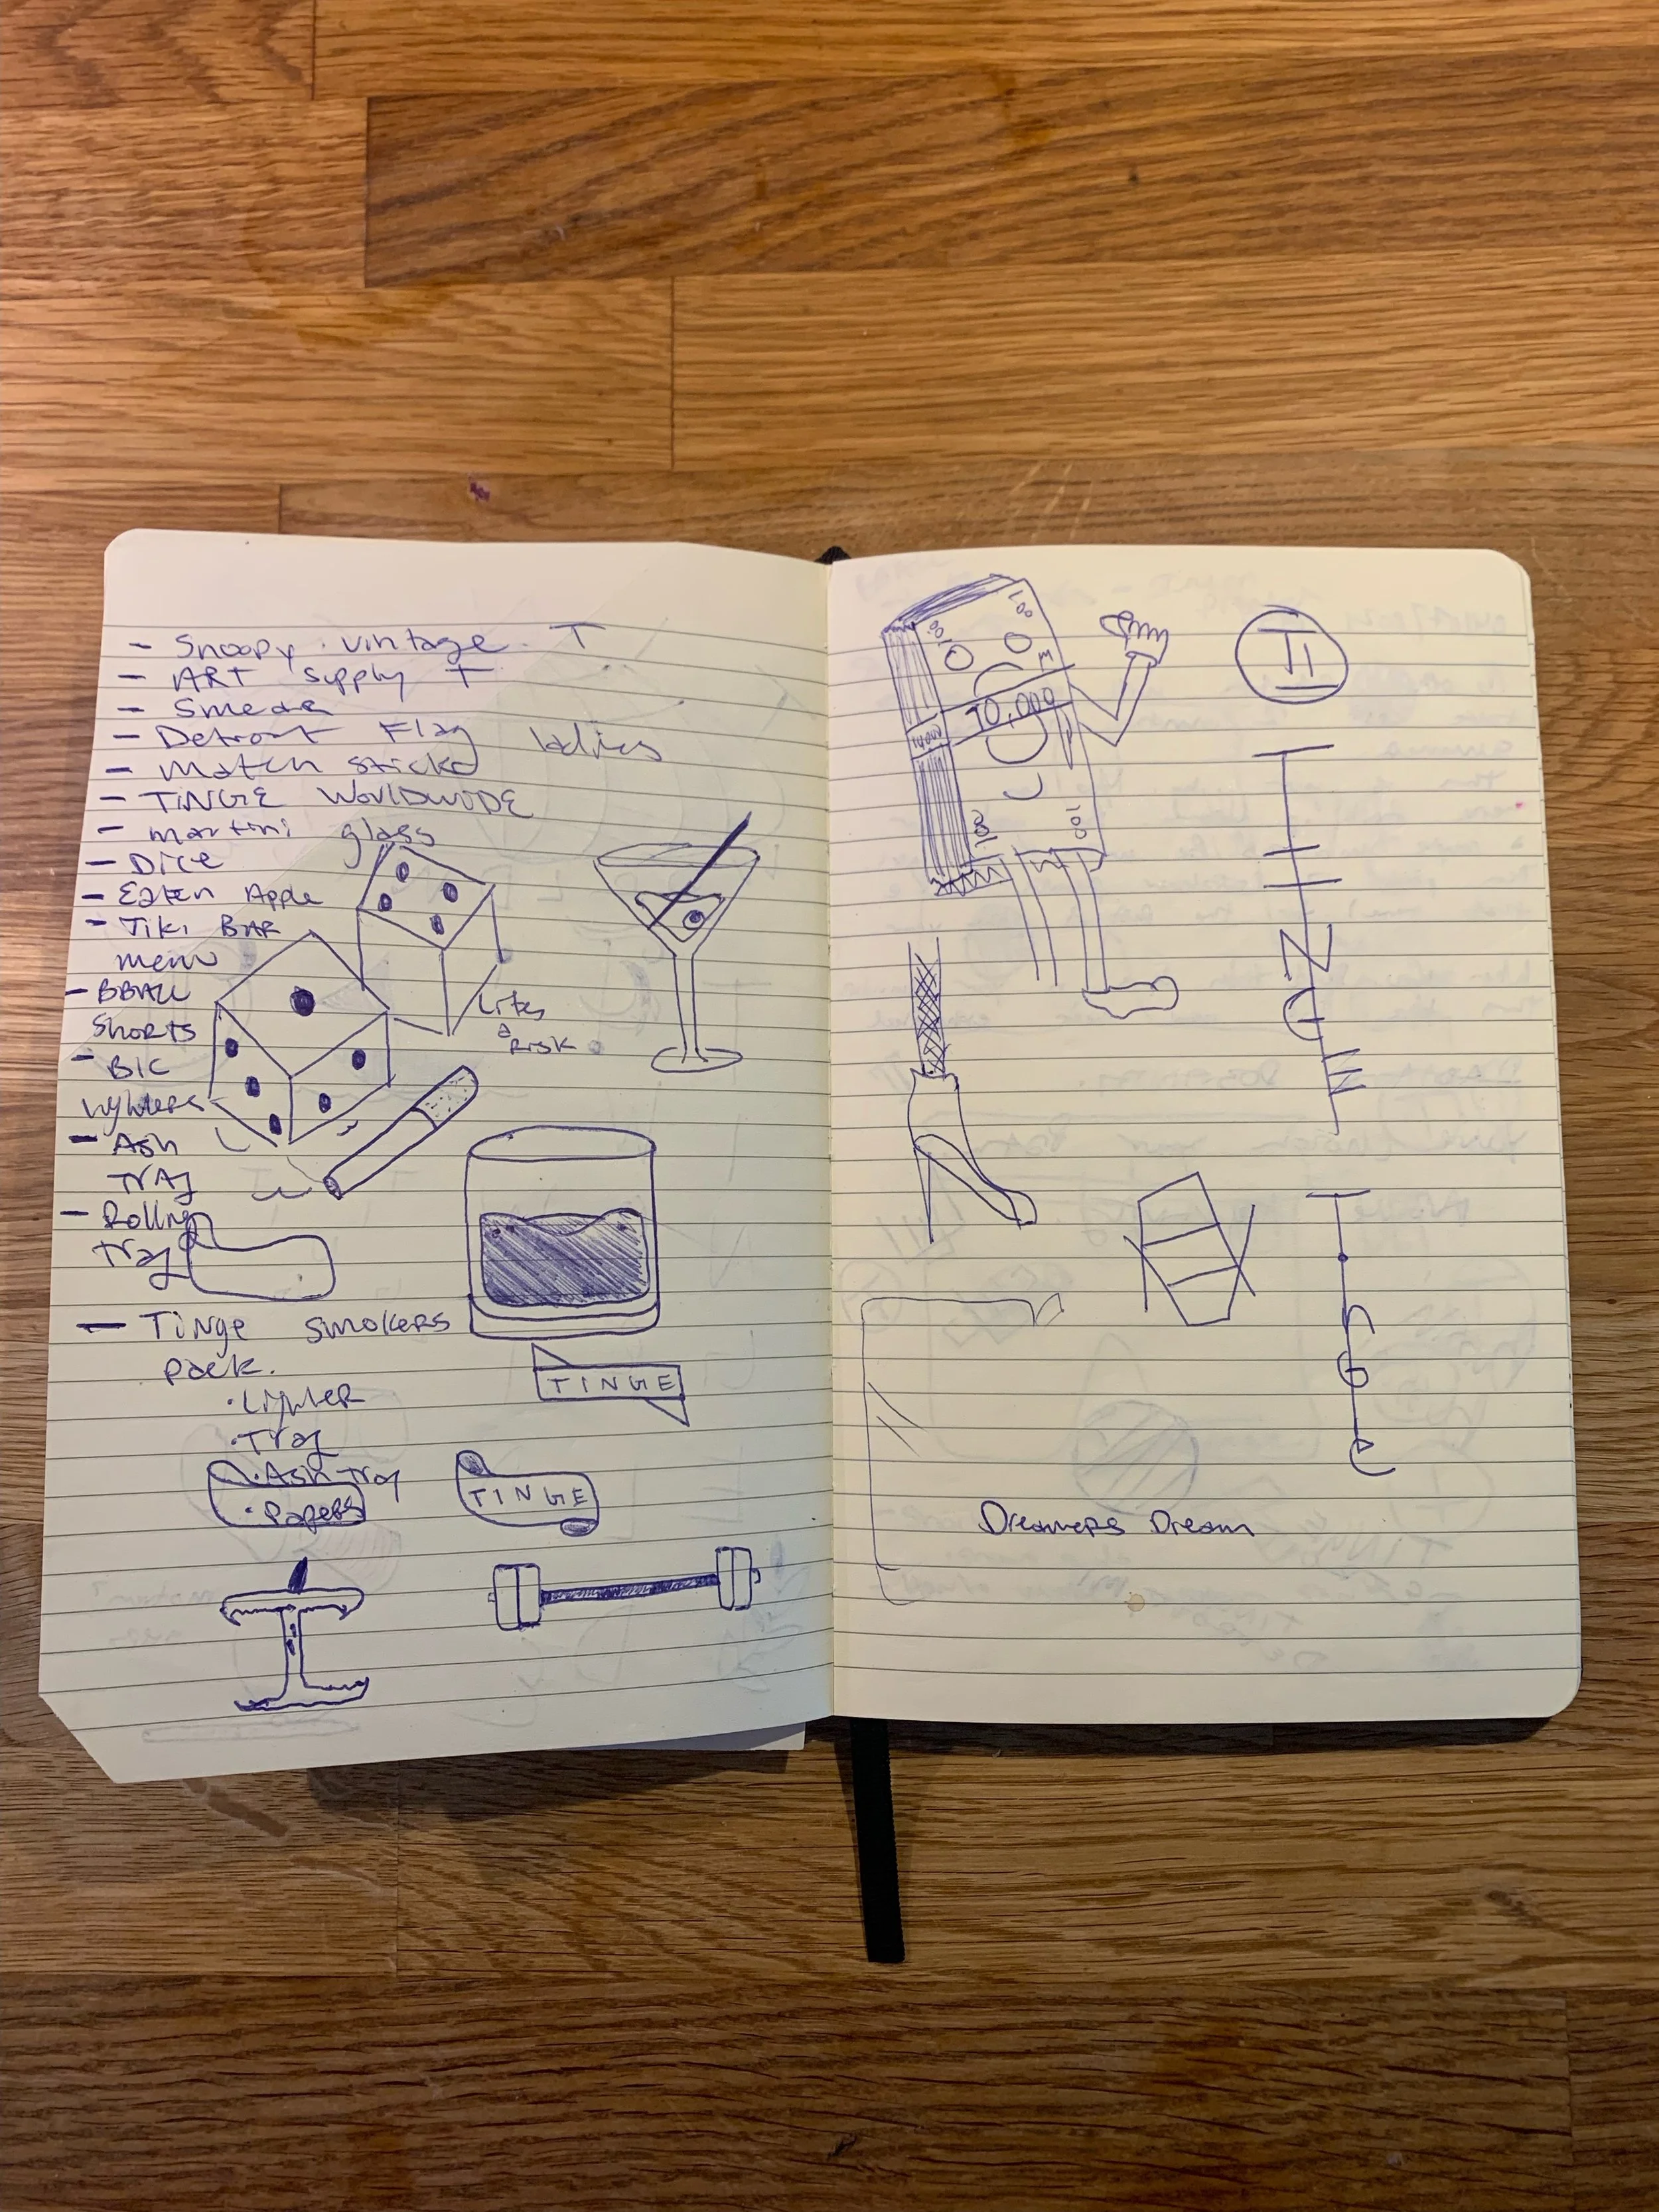 - Snoopy vintage T
- ART Supply T
- Smear
- Detroit Flag ladies
- match sticks
- TiNGE WORLDWIDE
- martini glass
- Dice
- Eaten Apple
- Tiki BAR
menu
- BBALL
Shorts
- BIC
Lighters
- Ash
TrAy
- Rolling
Tray
Lifes
a
Risk
- TiNge smokers
pack.
· Lighter
· Tray
· Ash tray
· Papers
TINGE
TINGE
100
100
10,000
10,000
100
100
TI
TINGE
TiNGe
Dreamers Dream